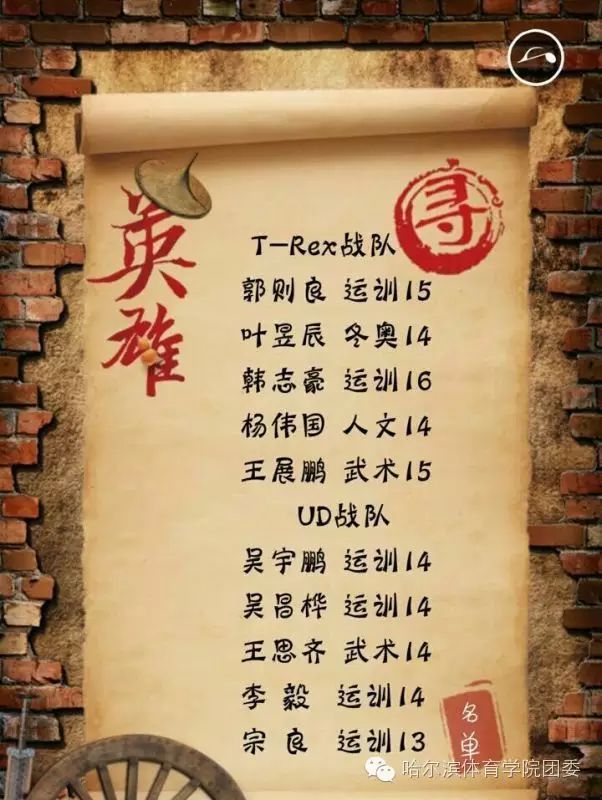 寻
英雄
T-Rex战队
郭则良 运训15
叶昱辰 冬奥14
韩志豪 运训16
杨伟国 人文14
王展鹏 武术15
UD战队
吴宇鹏 运训14
吴昌桦 运训14
王思齐 武术14
李毅 运训14
宗良 运训13
名单
哈尔滨体育学院团委